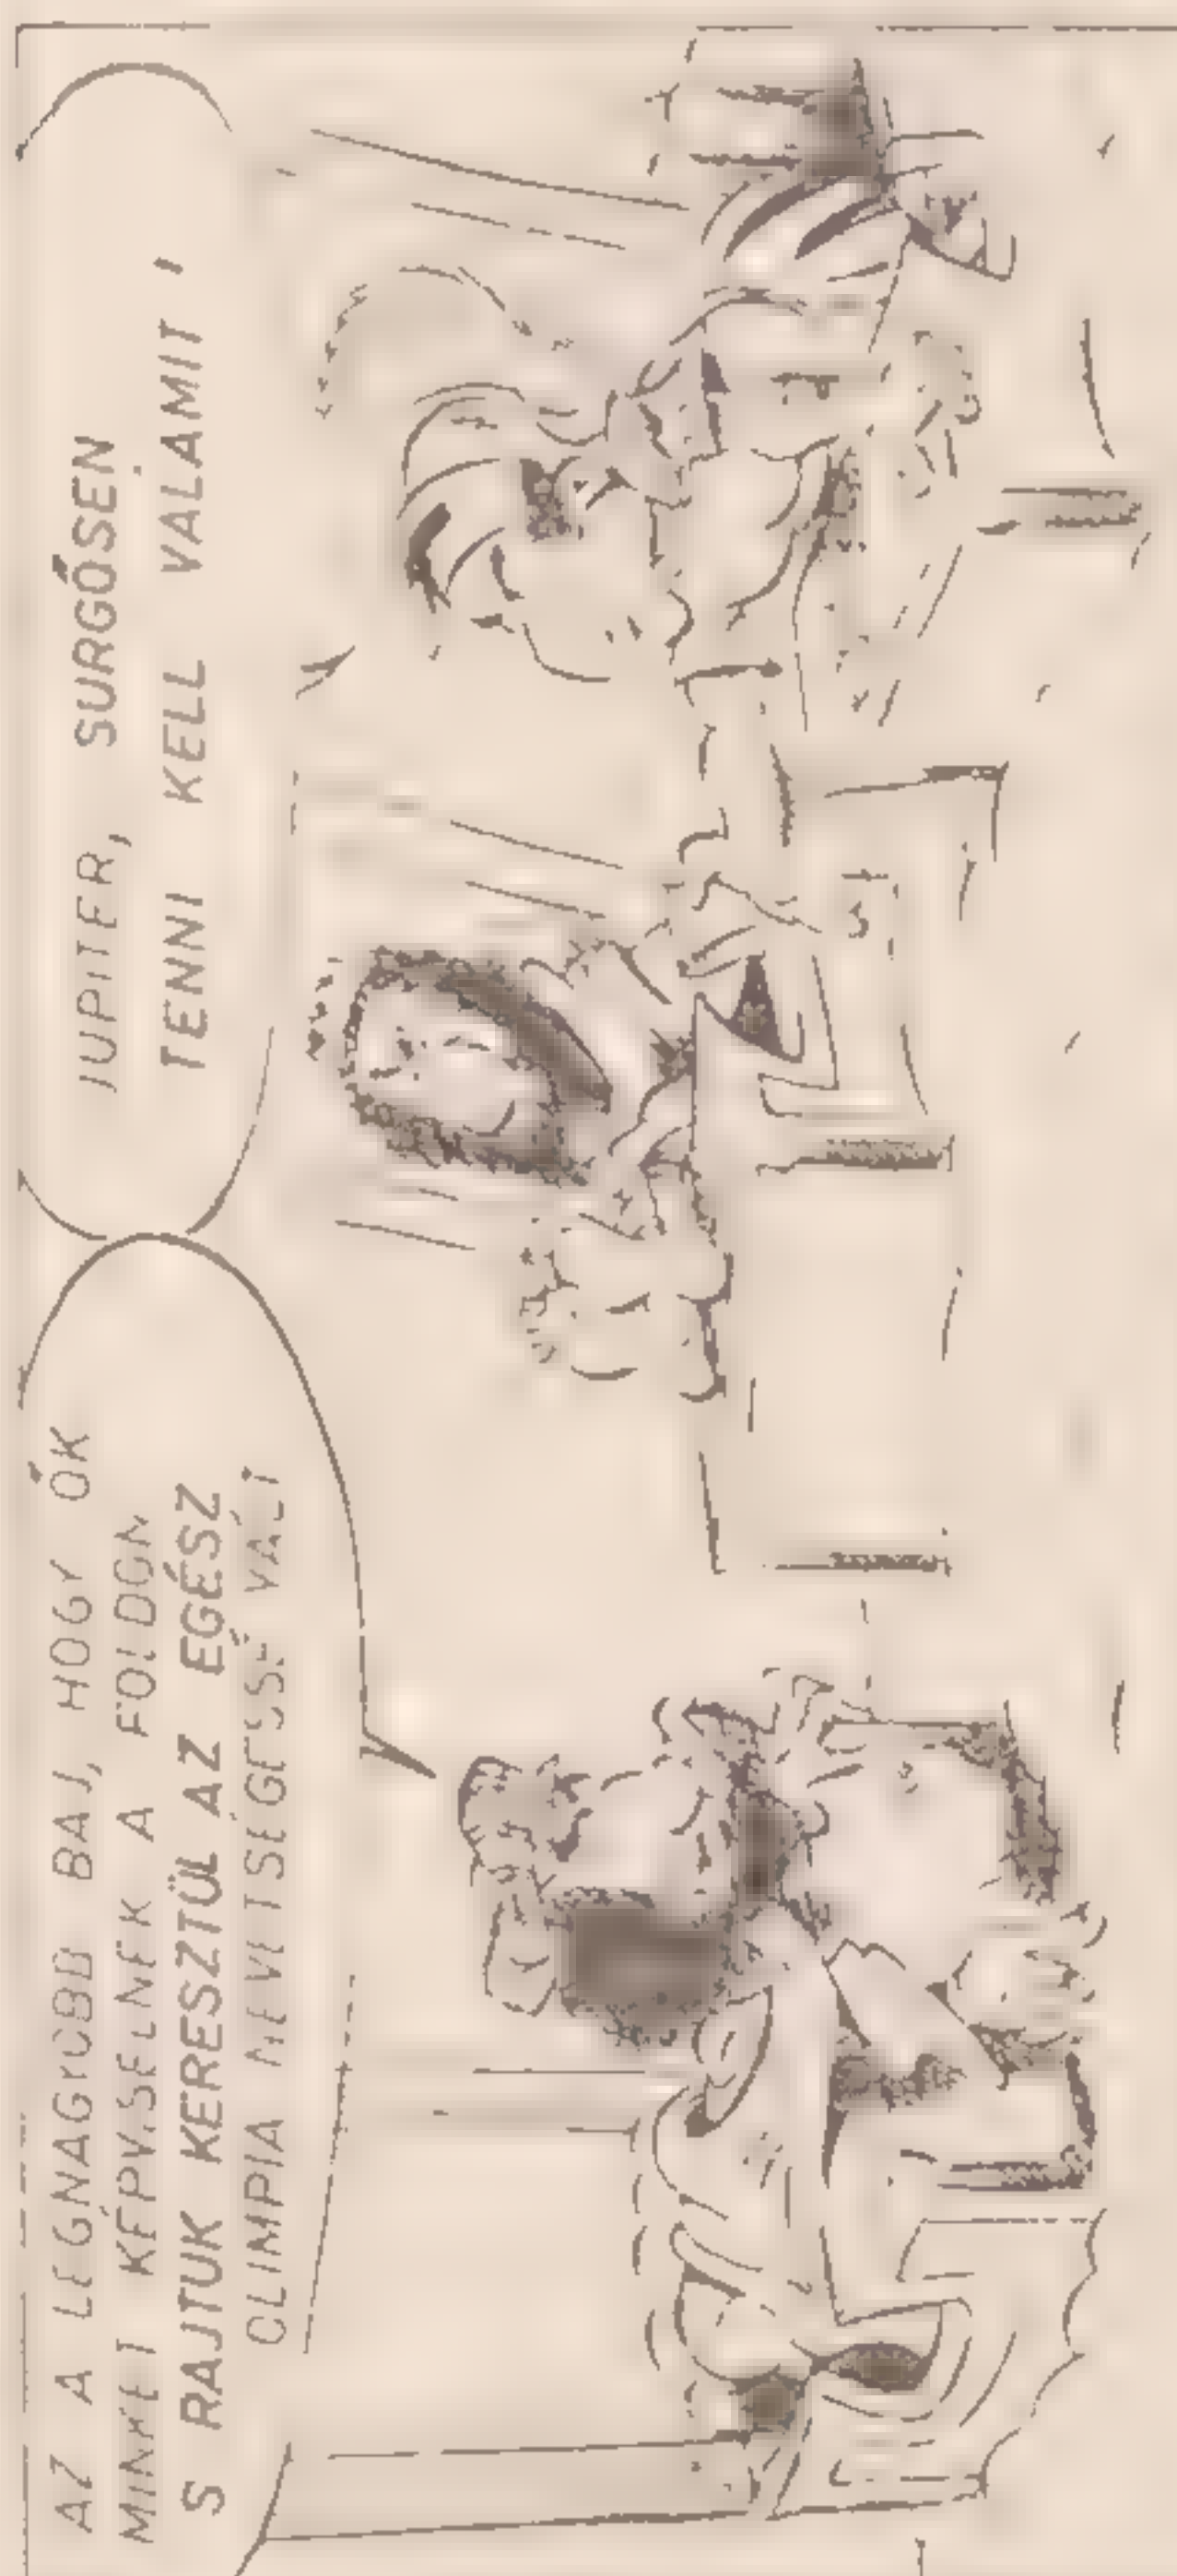 AZ A LEGNAGYOBB BAJ, HOGY ŐK
MINKET KÉPVISELNEK A FOLDON
S RAJTUK KERESZTÜL AZ EGÉSZ
OLIMPIA NEVETSÉGESSÉ VÁLT
JUPITER, SURGŐSEN
TENNI KELL VALAMIT !